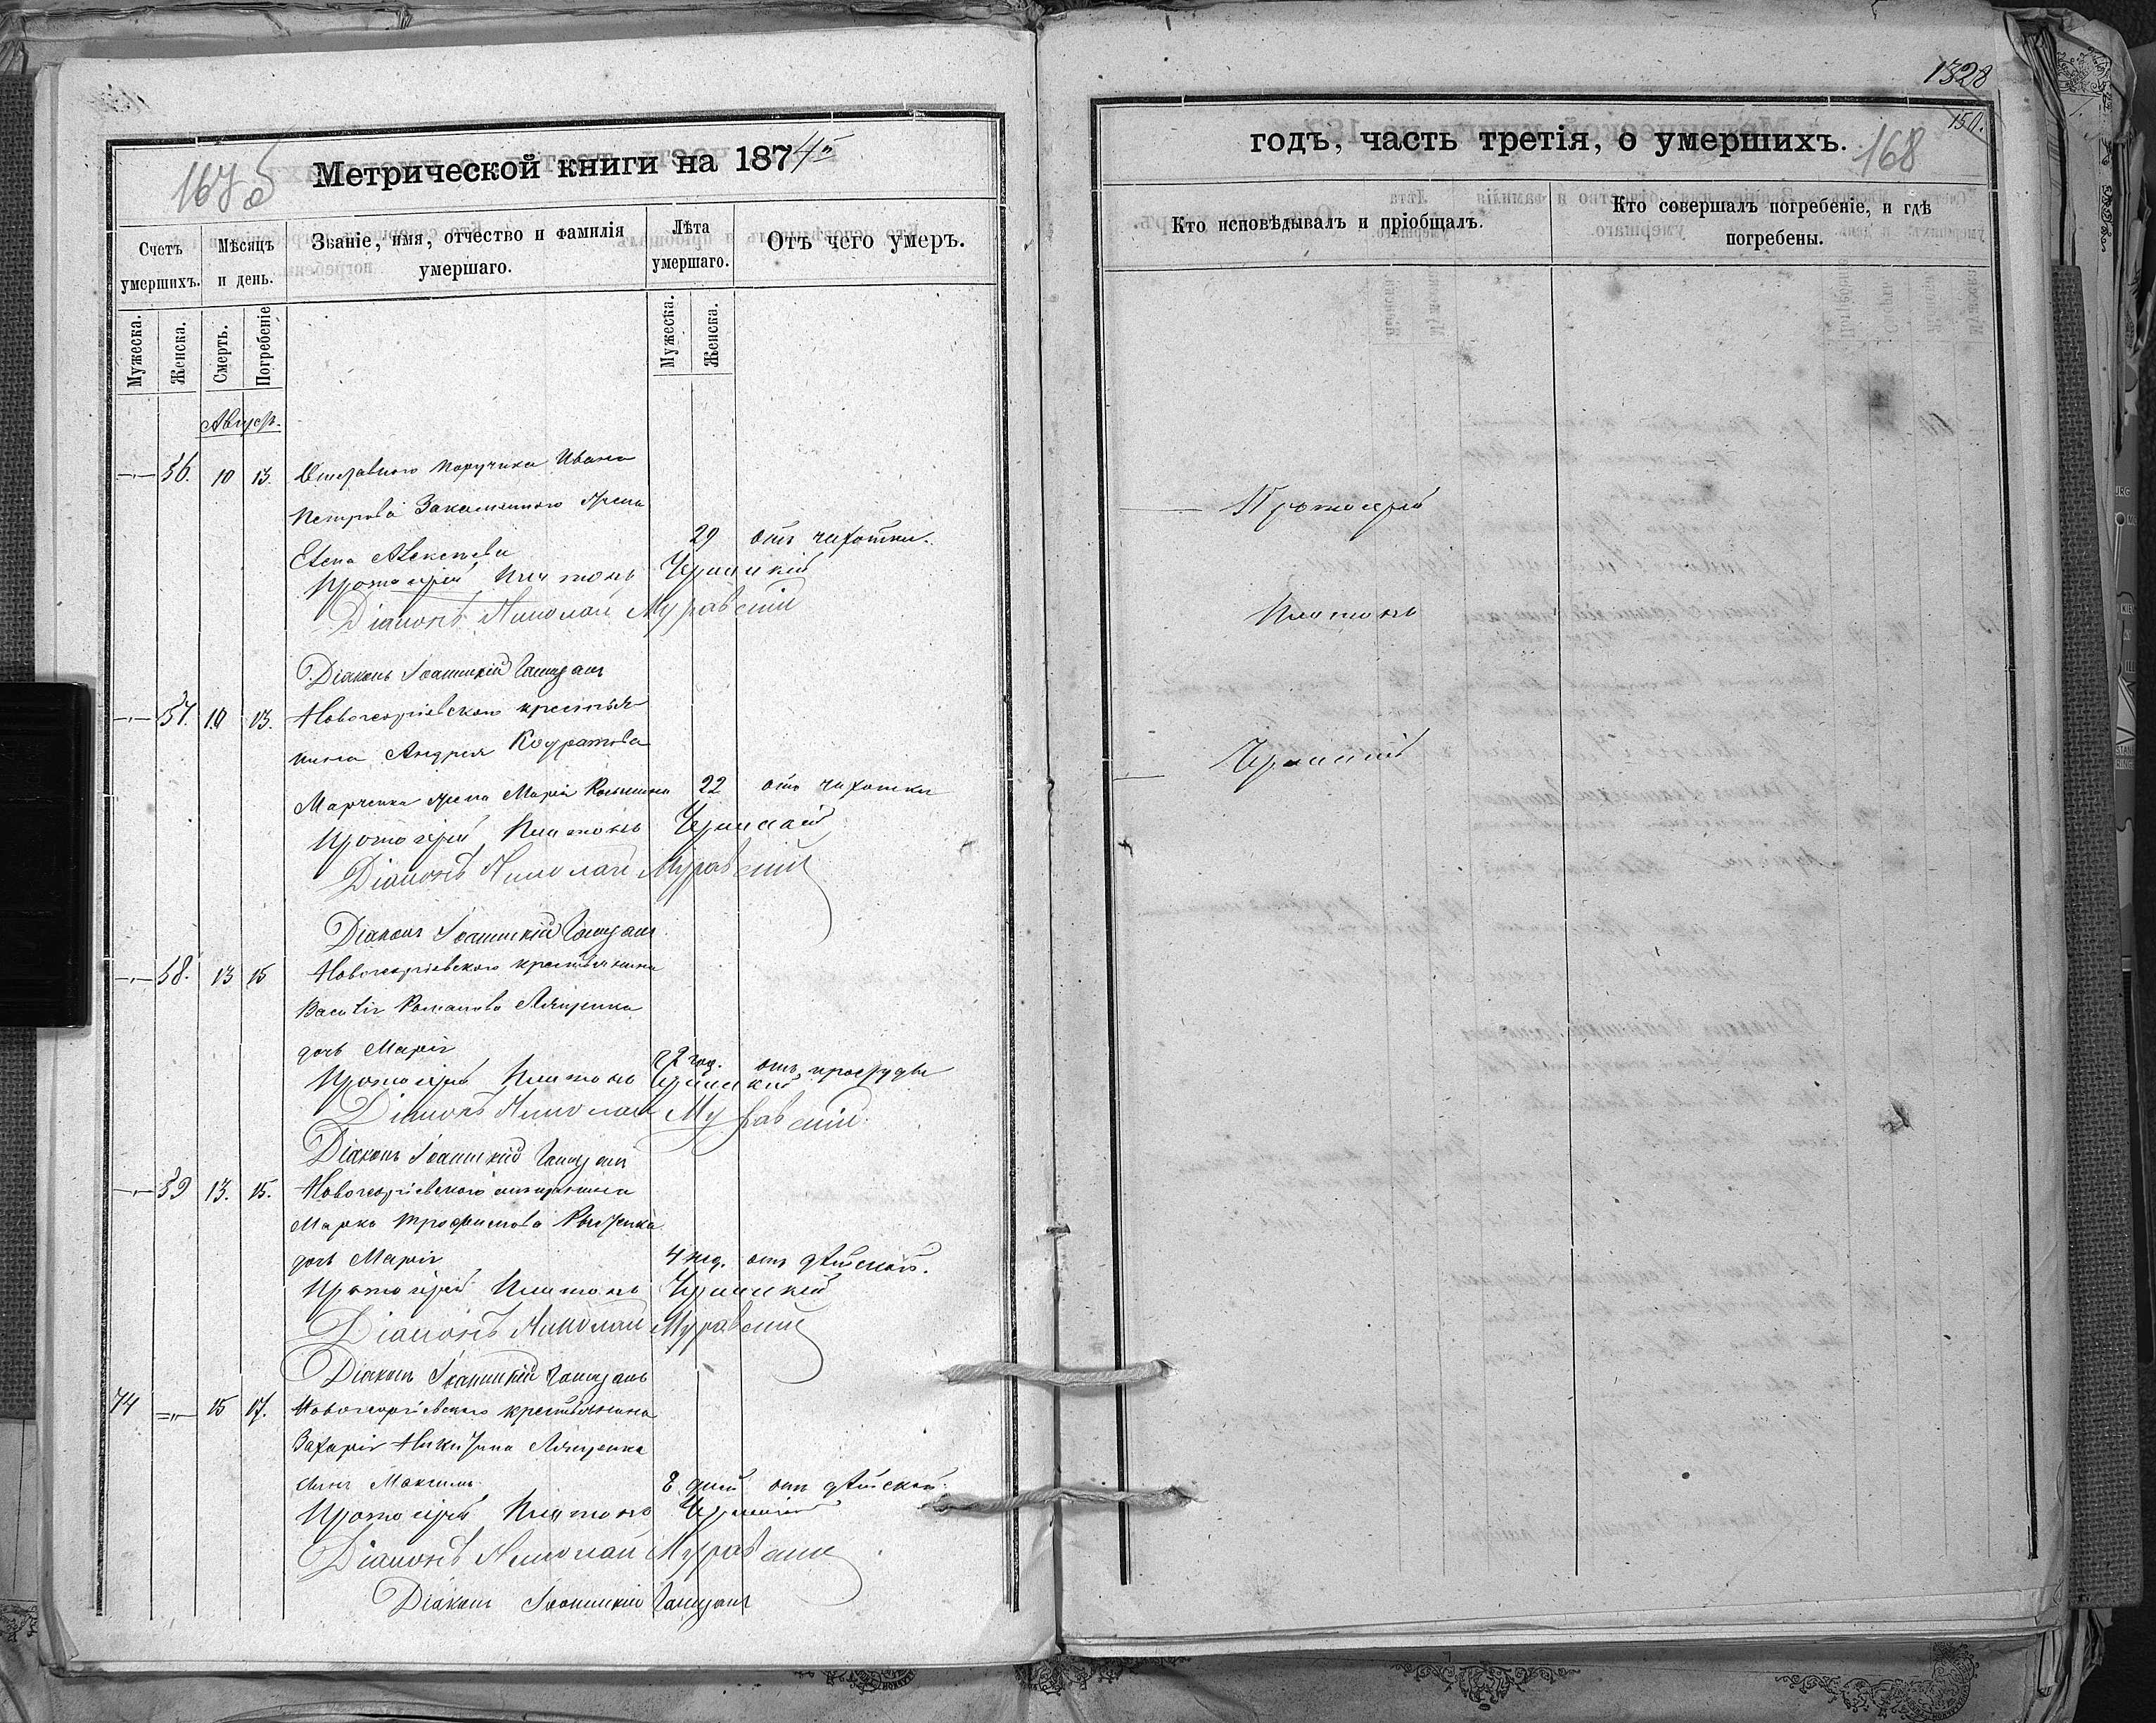 Метрической книги на 1874й
Счетъ умершихъ.
Мѣсяцъ и день.
Званіе, имя, отчество и фамилія умершаго.
Лѣта умершаго.
Отъ чего умеръ.
Мужеска.
Женска.
Смерть.
Погребеніе
Мужеска.
Женска.
Август.
56. 10 13. Отставного поручика Ивана
Петрова жена
Елена Алексѣева 29 отъ чахотки.
Протоіерей Платонъ Чернискій
Діаконъ Николай Муравскій
Діаконъ Іоанникій
57. 10 13. Новогеоргіевскаго крестья
нина Андрея Кодратова
Марченка жена Марія 22 отъ чахотки
Протоіерей Платонъ Чернискій
Діаконъ Николай Муравскій
Діаконъ Іоанникій
58. 13 15 Новогеоргіевского крестьянина
Василія Романова Лященка
дочь Марія 2 год. отъ простуды
Протоіерей Платонъ Чернискій
Діаконъ Николай Муравскій
Діаконъ Іоанникій
59 13. 15. Новогеоргіевского мищанина
Марка Трофимова
дочь Марія 4 нед. отъ дѣтской.
Протоіерей Платонъ Чернискій
Діаконъ Николай Муравскій
Діаконъ Іоанникій
74 15 17. Новогеоргіевского крестьянина
Захарія Никитина Лященка
сынъ Максимъ 8 дней отъ дѣтской.
Протоіерей Платонъ Чернискій
Діаконъ Николай Муравскій
Діаконъ Іоанникій
1328
150.
годъ, часть третія, о умершихъ.
168
Кто исповѣдывалъ и пріобщалъ.
Кто совершалъ погребеніе, и гдѣ погребены.
Протоіерей
Платонъ
Чернискій